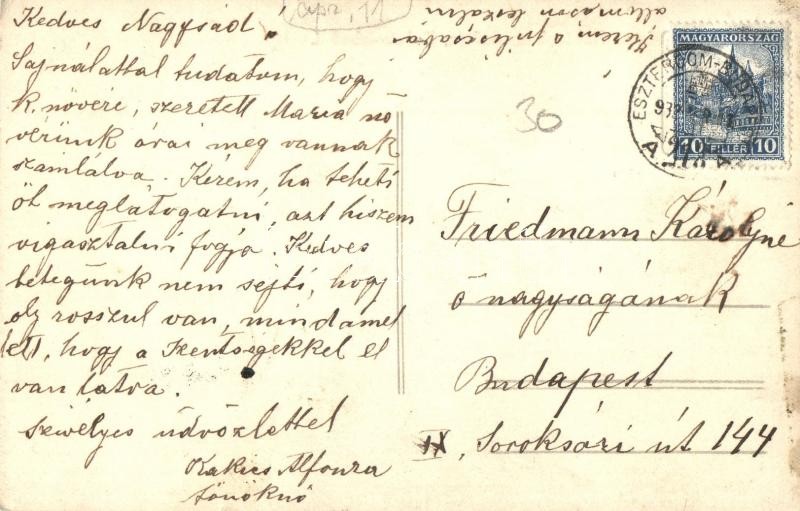 Kedves Nagysád!
Sajnálattal tudatom, hogy
k. nővére, szeretett Mária nő
vérünk órái meg vannak
számlálva. Kérem, ha teheti
őt meglátogatni, azt hiszem
vigasztalni fogja. Kedves
betegünk nem sejti, hogy
oly rosszul van, mindamel
lett, hogy a szentségekkel el
van látva.
Szívélyes üdvözlettel
Alfonza
főnöknő
ápr. 11
Kérem a piliscsabai
állomáson leszállni
30
MAGYARORSZÁG
10 FILLÉR 10
ESZTERGOM-BUDAPEST
Friedmann Károlyné
ő nagyságának
Budapest
IX, Soroksári út 144